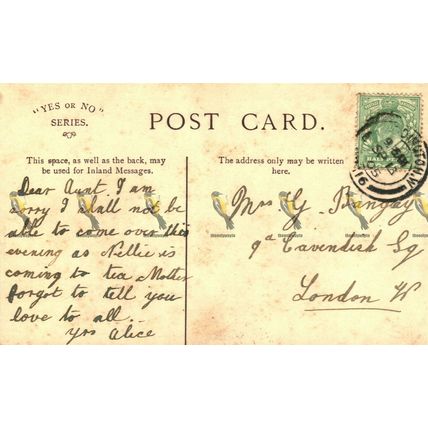 "YES OR NO"
SERIES.
POST CARD.
This space, as well as the back, may
be used for Inland Messages.
The address only may be written
here.
Dear Aunt. I am
sorry I shall not be
able to come over this
evening as Nellie is
coming to tea Mother
forgot to tell you
love to all.
Yrs Alice
Mrs G. Bangay
9a Cavendish Sq
London W
HALFPENNY